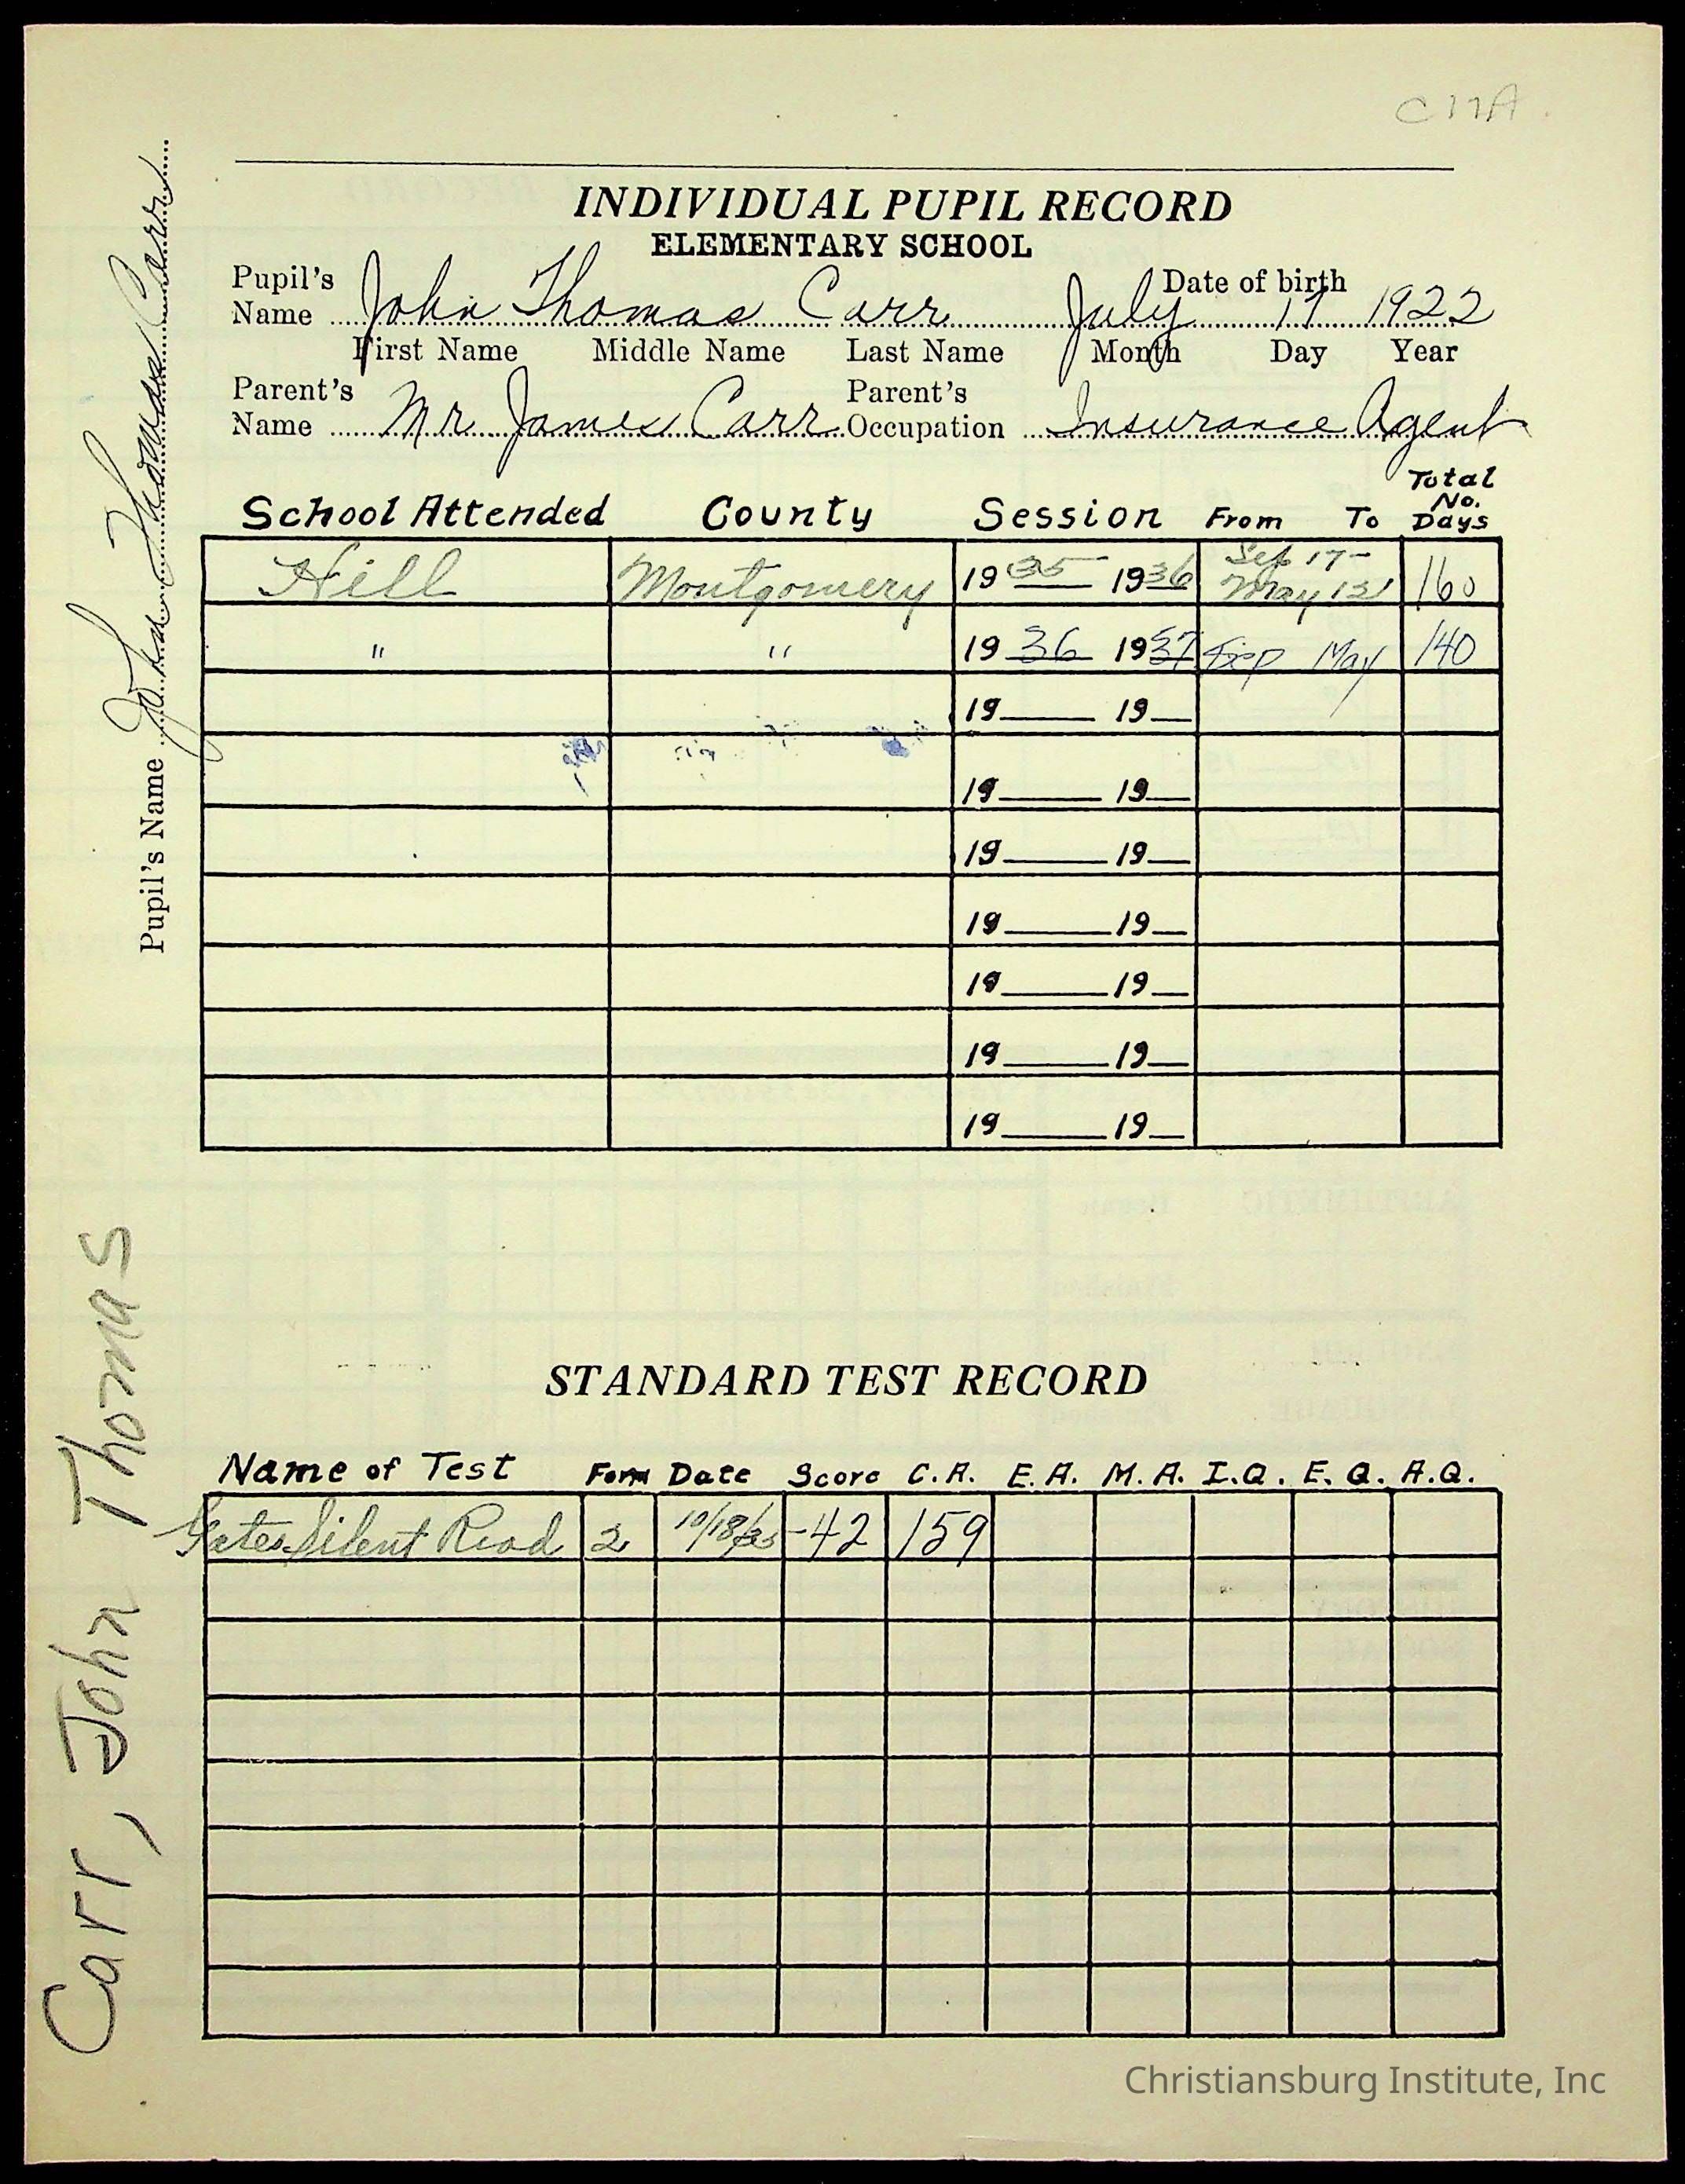 INDIVIDUAL PUPIL RECORD
ELEMENTARY SCHOOL
Pupil's Name John Thomas Carr Date of birth July 17 1922
First Name Middle Name Last Name Month Day Year
Parent's Name Mr James Carr Parent's Occupation Insurance Agent
School Attended County Session From To Total No. Days
Hill Montgomery 1935 1936 Sep 17- May 13 160
" " 1936 1937 Sep May 140
19 19
19 19
19 19
19 19
19 19
19 19
19 19
STANDARD TEST RECORD
Name of Test Form Date Score C.A. E.A. M.A. I.Q. E.Q. A.Q.
Gates Silent Read 2 10/18/35 -42 159
Pupil's Name John Thomas Carr
Carr, John Thomas
Christiansburg Institute, Inc